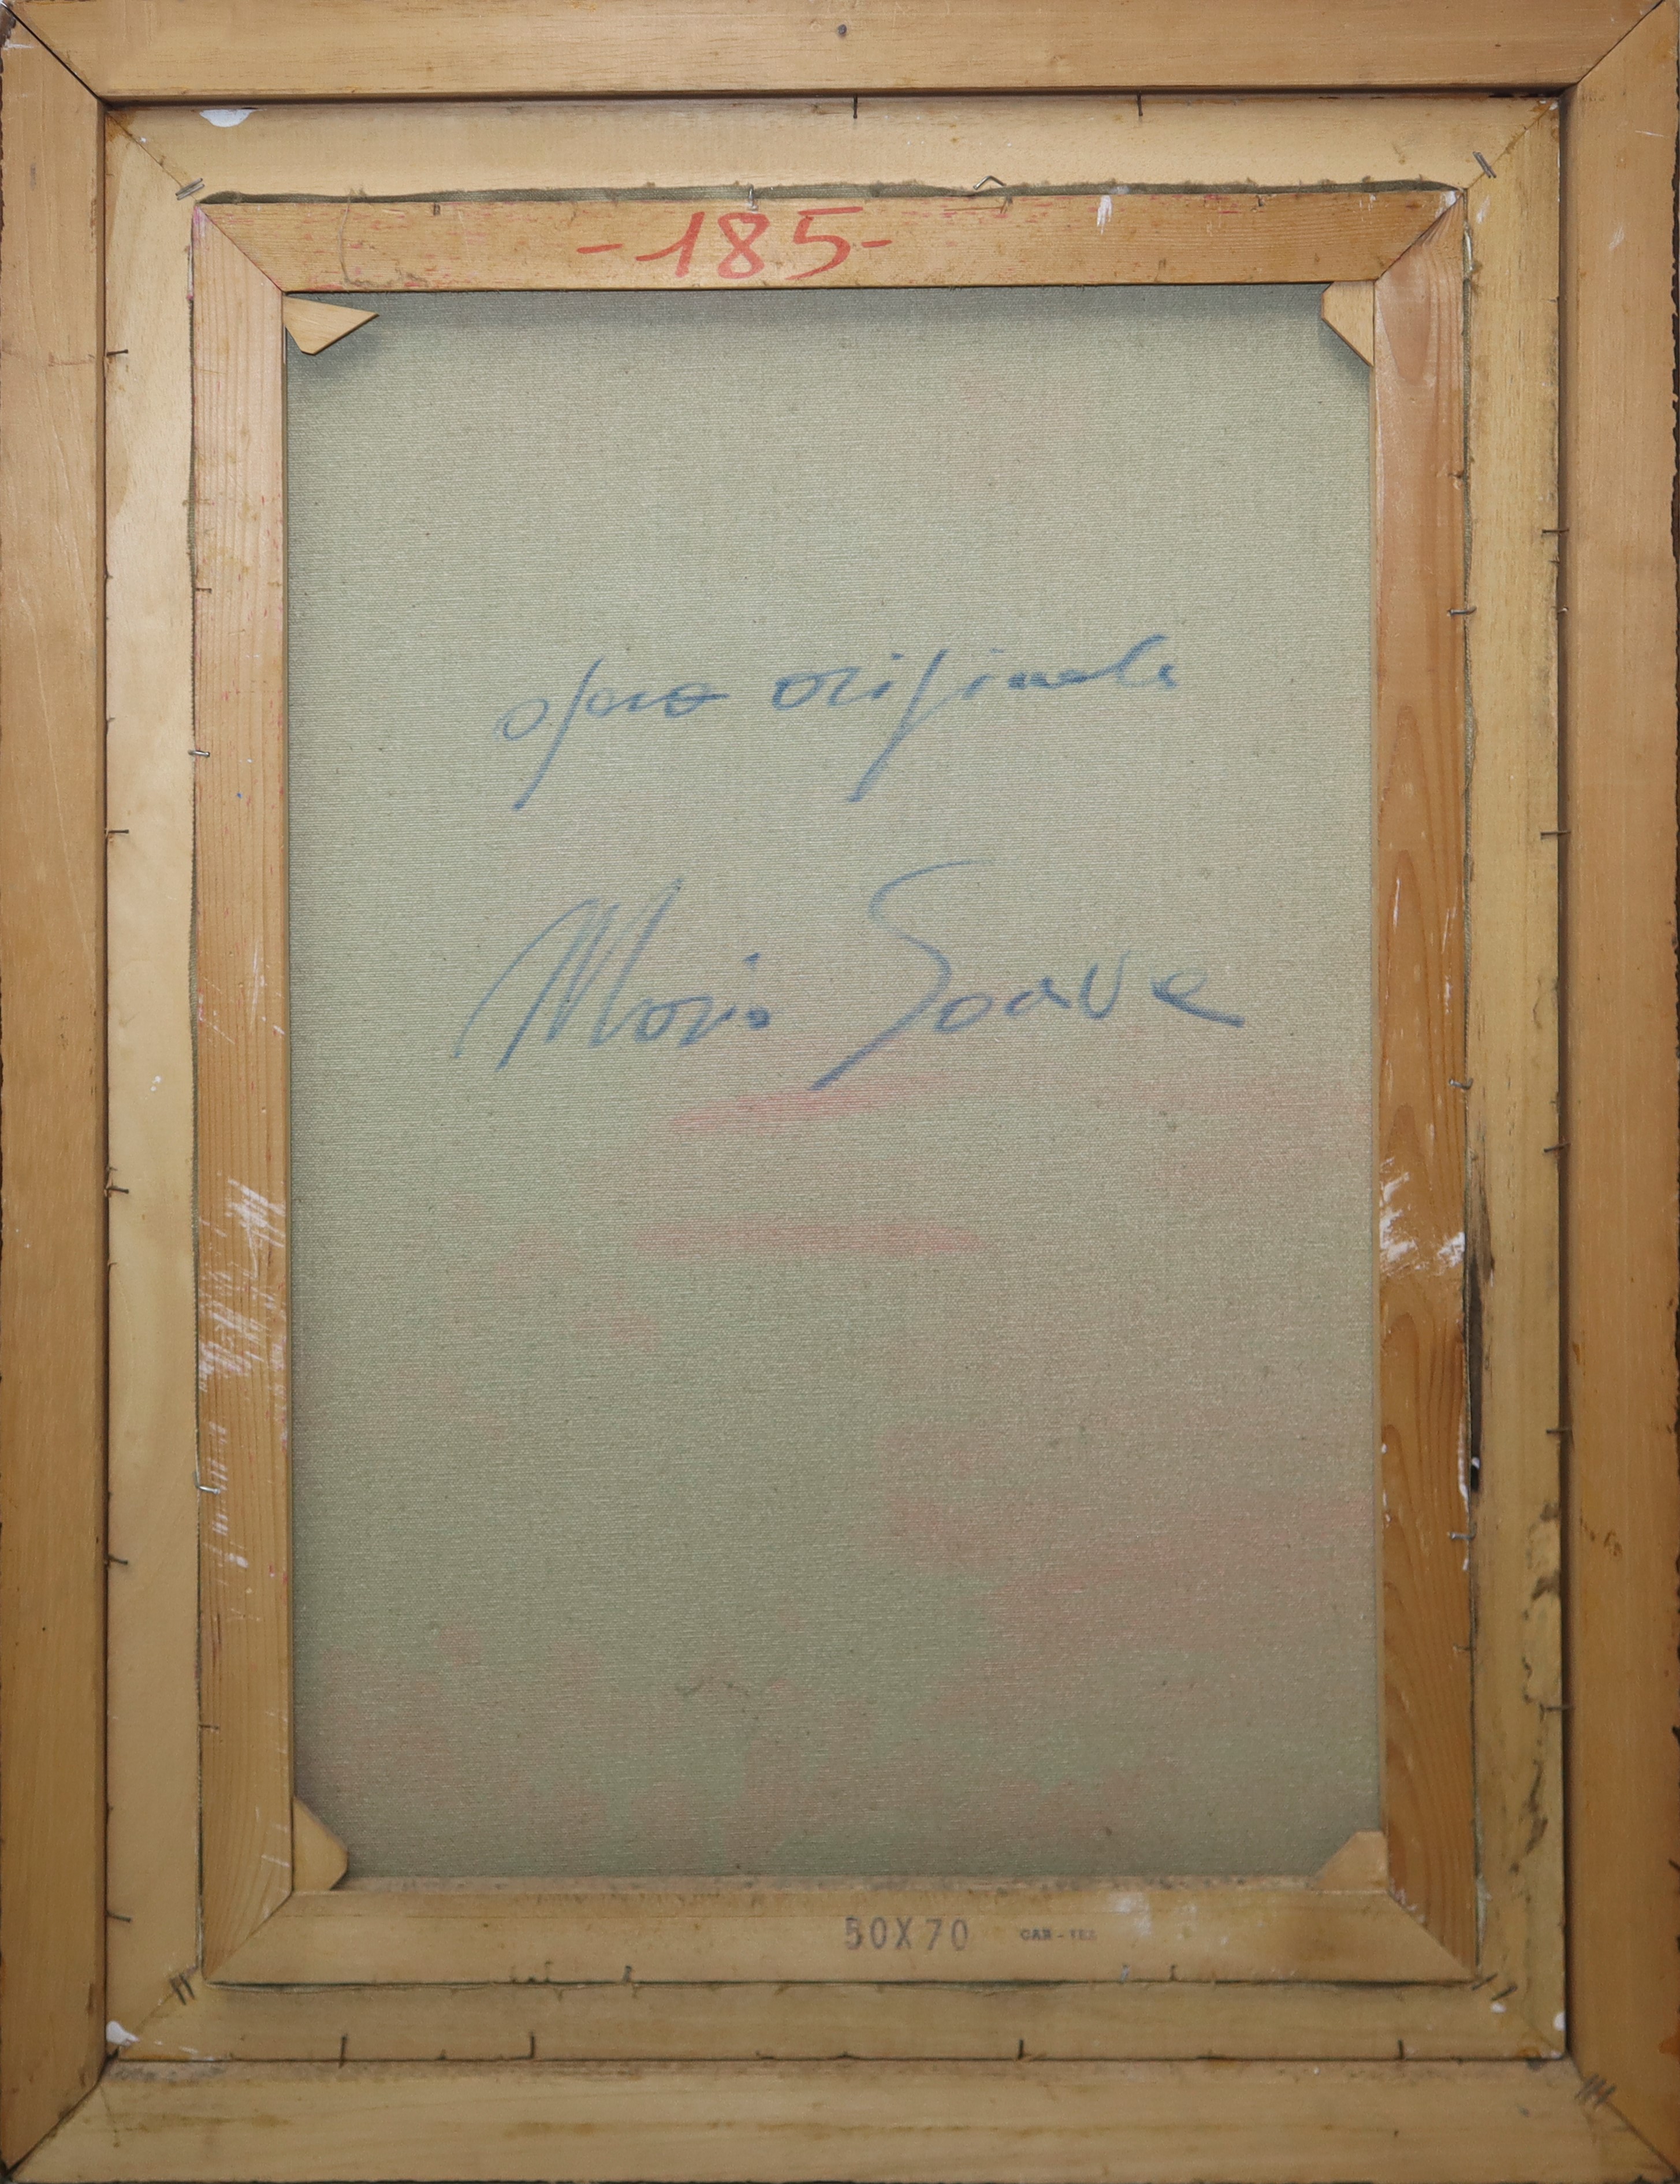 -185-
opera originale
Mario Soave
50X70 CAR-TES